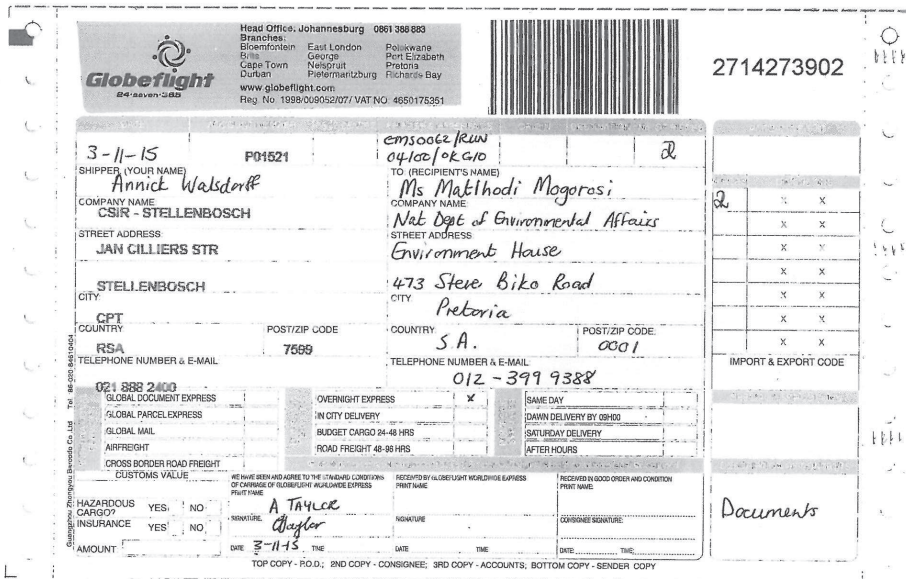 Globeflight
24-seven-365
Head Office: Johannesburg 0861 388 883
Branches:
Bloemfontein East London Polokwane
Brits George Port Elizabeth
Cape Town Nelspruit Pretoria
Durban Pietermaritzburg Richards Bay
www.globeflight.com
Reg. No. 1998/009052/07/ VAT NO: 4650175351
2714273902
3-11-15 P01521
EMS0062/RUN
04/00/0KG10
2
SHIPPER (YOUR NAME)
Annick Walsdorff
COMPANY NAME
CSIR - STELLENBOSCH
STREET ADDRESS
JAN CILLIERS STR
STELLENBOSCH
CITY
CPT
COUNTRY POST/ZIP CODE
RSA 7599
TELEPHONE NUMBER & E-MAIL
021 888 2400
TO (RECIPIENT'S NAME)
Ms Matlhodi Mogorosi
COMPANY NAME
Nat Dept of Environmental Affairs
STREET ADDRESS
Environment House
473 Steve Biko Road
CITY
Pretoria
COUNTRY POST/ZIP CODE
S.A. 0001
TELEPHONE NUMBER & E-MAIL
012 - 399 9388
2 x x
x x
x x
x x
x x
x x
x x
IMPORT & EXPORT CODE
GLOBAL DOCUMENT EXPRESS
GLOBAL PARCEL EXPRESS
GLOBAL MAIL
AIRFREIGHT
CROSS BORDER ROAD FREIGHT
OVERNIGHT EXPRESS x
IN CITY DELIVERY
BUDGET CARGO 24-48 HRS
ROAD FREIGHT 48-96 HRS
SAME DAY
DAWN DELIVERY BY 09H00
SATURDAY DELIVERY
AFTER HOURS
CUSTOMS VALUE
HAZARDOUS CARGO? YES NO
INSURANCE YES NO
AMOUNT
WE HAVE SEEN AND AGREE TO THE STANDARD CONDITIONS
OF CARRIAGE OF GLOBEFLIGHT WORLDWIDE EXPRESS
PRINT NAME
A TAYLOR
SIGNATURE
ATaylor
DATE 3-11-15 TIME
RECEIVED BY GLOBEFLIGHT WORLDWIDE EXPRESS
PRINT NAME
SIGNATURE
DATE TIME
RECEIVED IN GOOD ORDER AND CONDITION
PRINT NAME:
CONSIGNEE SIGNATURE:
DATE: TIME:
Documents
TOP COPY - P.O.D.; 2ND COPY - CONSIGNEE; 3RD COPY - ACCOUNTS; BOTTOM COPY - SENDER COPY